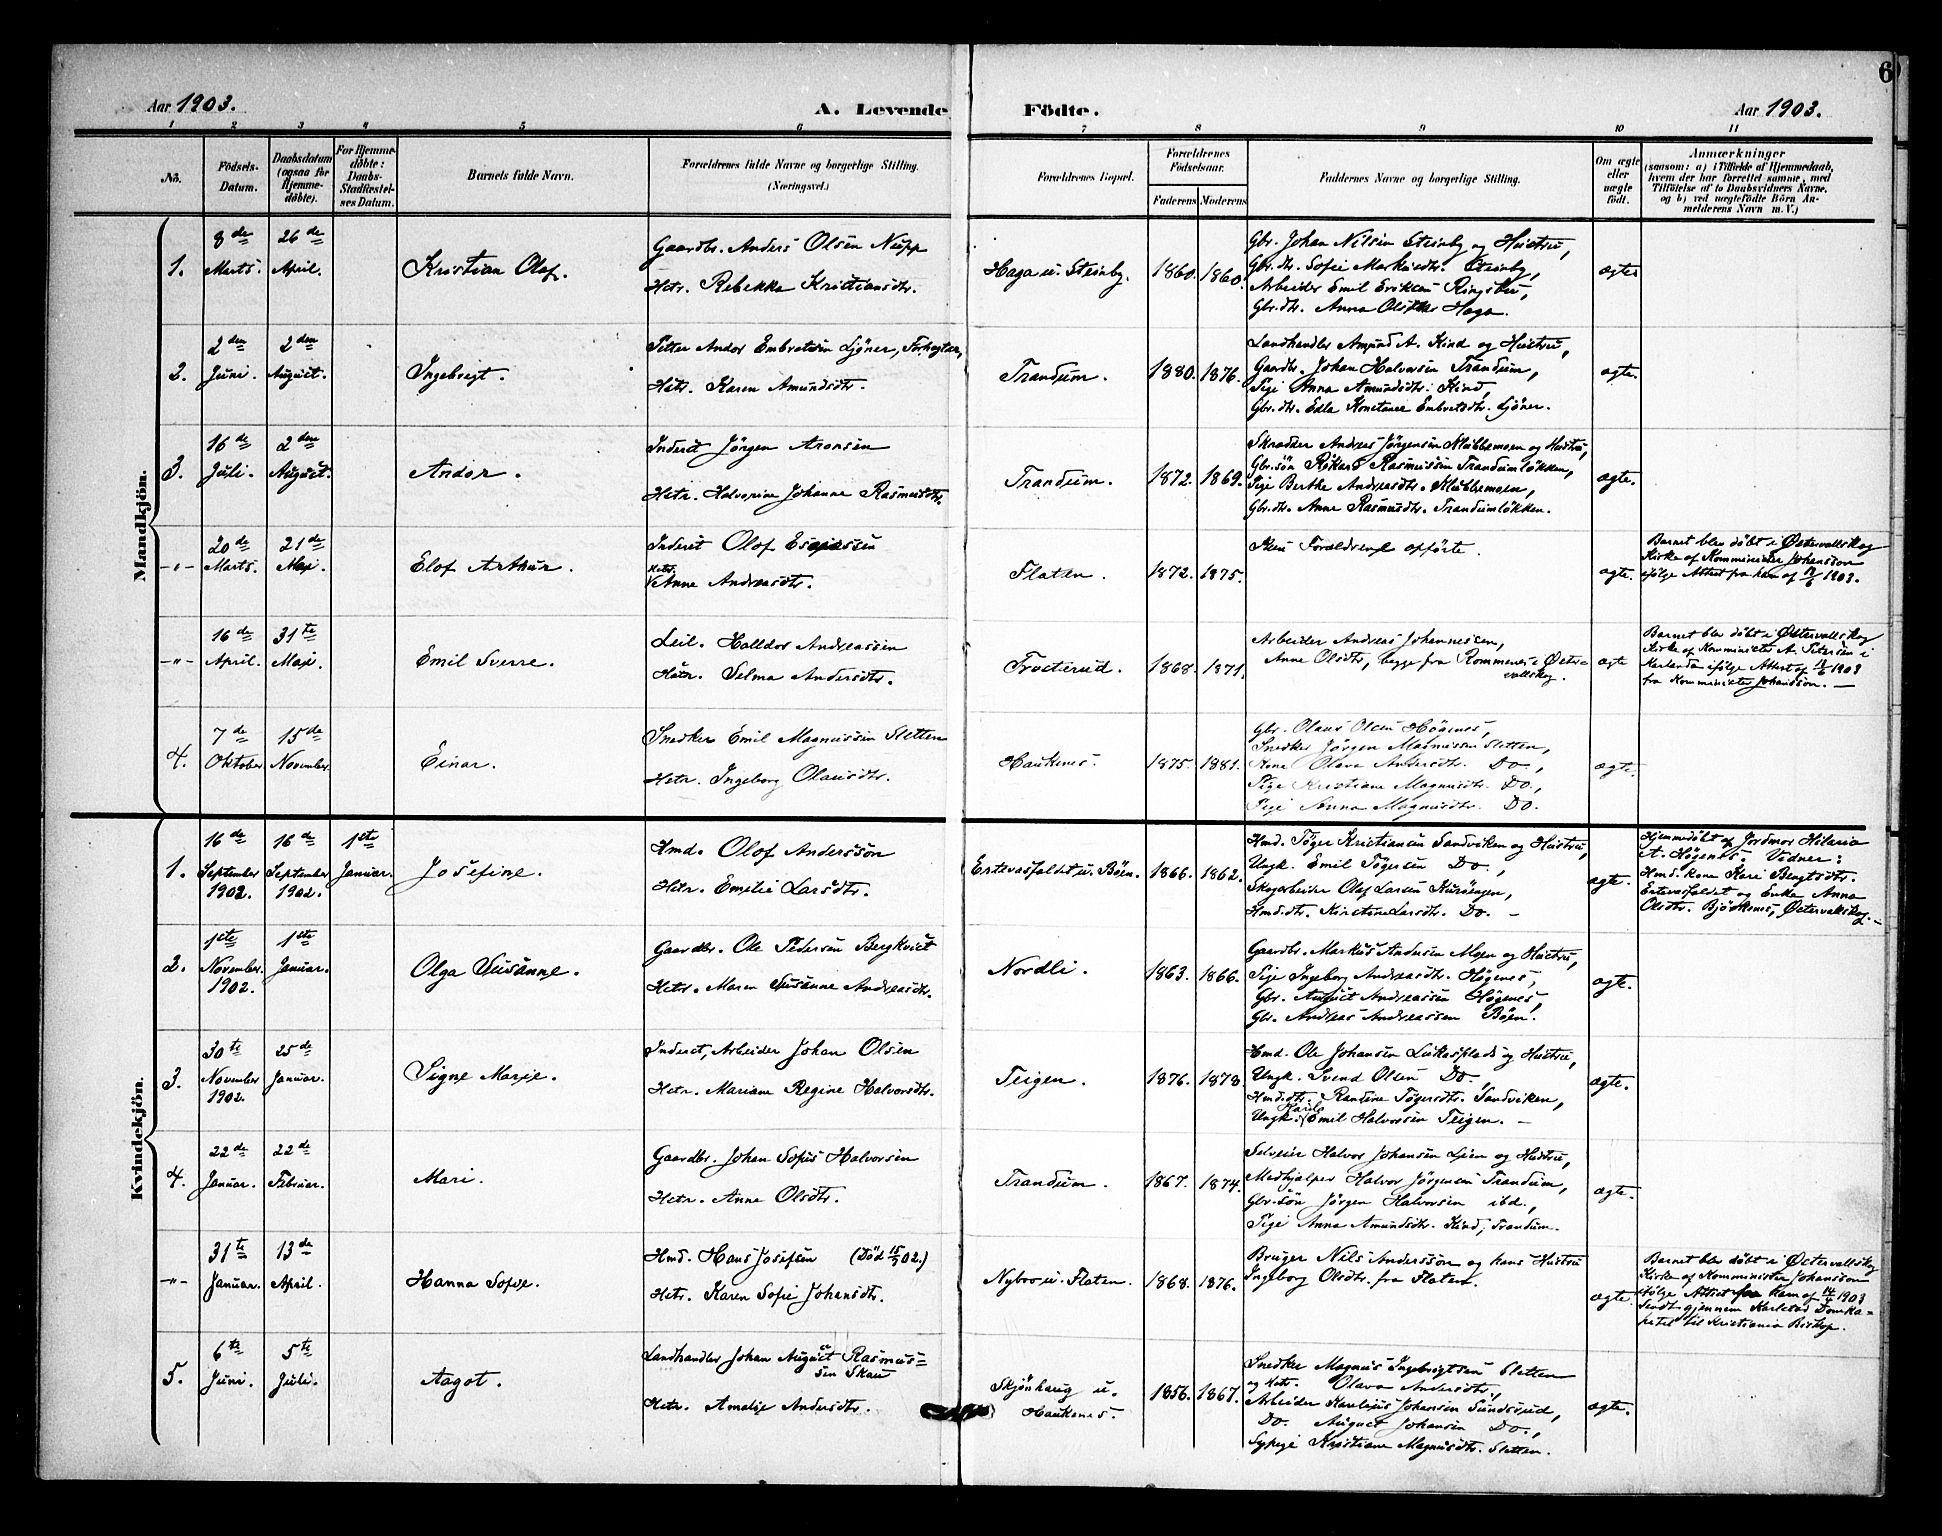 6
Aar 1903. A. Levende Födte. Aar 1903.
1 2 3 4 5 6 7 8 9 10 11
No. Födsels-Datum. Daabsdatum (ogsaa for Hjemmedöbte). For Hjemmedöbte: Daabs-Stadfæstelses Datum. Barnets fulde Navn. Forældrenes fulde Navne og borgerlige Stilling. (Næringsvei.) Forældrenes Bopæl. Forældrenes Födselsaar. Faderens Moderens Faddernes Navne og borgerlige Stilling. Om ægte eller uægte födt. Anmærkninger
(saasom: a) i Tilfælde af Hjemmedaab,
hvem der har forrettet samme, med
Tilföielse af to Daabsvidners Navne,
og b) ved uægtefödte Börn An-
melderens Navn m. V.)
Mandkjön.
1. 8de Marts. 26de April. Kristian Olaf.
Gaardbr. Anders Olsen Nupp
Hstr. Rebekka Kristiansdtr.
Haga u. Steinby. 1860. 1860.
Gbr. Johan Nilsen Steinby og Hustru,
Gbr. dtr. Sofie Markusdtr. Steinby,
Arbeider Emil Eriksen Ringsbu,
Gbr. dtr. Anna Olsdtr Haga.
ægte
2. 2den Juni. 2den August. Ingebrigt.
Petter Andor Embretsen Ljöner, Forhogter,
Hstr. Karen Amundsdtr.
Trandum. 1880. 1876.
Landhandler Amund A. Kind og Hustru,
Gaardbr. Johan Halvorsen Trandum,
Pige Anna Amundsdtr. Kind,
Gbr. dtr. Edla Konstance Embretsdtr. Ljöner.
ægte.
3. 16de Juli. 2den August. Andor.
Inderst Jörgen Aronsen
Hstr. Halvorine Johanne Rasmusdtr.
Trandum. 1872. 1869.
Skrædder Andreas Jørgensen Klubbemoen og Hustru,
Gbr. sön Rikard Rasmussen Trandumløkken,
Pige Berthe Andreasdtr. Klubbemoen,
Gbr. dtr. Anne Rasmusdtr. Trandumløkken.
ægte.
-"- 20de Marts. 21de Mai. Elof Arthur.
Inderst Olof Esaiassen
Hstr. Anne Andreasdtr.
Flaten. 1872. 1875.
Kun Forældrene opförte.
ægte.
Barnet blev döbt i Østervallskog
Kirke af Komminister Johansson
ifölge Attest fra ham af 1903.
-"- 16de April. 31te Mai. Emil Sverre.
Leil. Halldor Andreassen
Hstr. Selma Andersdtr.
Troeterud. 1868. 1871.
Arbeider Andreas Johannessen,
Anne Olsdtr, begge fra Rommenes i Øster-
vallskog.
ægte
Barnet blev döbt i Østervallskog
Kirke af Komminister A. Petersen i
Karlanda ifölge Attest af 1903
fra Komminister Johansson. —
4. 7de Oktober 15de November. Einar.
Snedker Emil Magnussen Sletten
Hstr. Ingeborg Olausdtr.
Haukenes. 1875. 1881.
Gbr. Olaus Olsen Høgnes,
Snedker Jørgen Magnussen Sletten,
Kone Olava Andersdtr. Do.,
Pige Kristiane Magnusdtr. Do.,
Pige Anna Magnusdtr. Do.
ægte.
Kvindekjön.
1. 16de September 1902. 16de September 1902. 1ste Januar. Josefine.
Hmd. Olof Andersson
Hstr. Emelie Larsdtr.
Ertevasfaldet u. Böen. 1866. 1862.
Hmd. Töger Kristiansen Sandviken og Hustru,
Ungk. Emil Tögersen Do.,
Skogarbeider Olof Larsen Kursengen,
Hmd. dtr. Kirstine Larsdtr. Do. —
ægte.
Hjemmedöbt af Jordmor Hilaria
A. Høgenes. Vidner:
Hmd. kone Kari Bengtsdtr.
Ertevasfaldet og Enke Anna
Olsdtr. Bjökenes, Østervallskog. —
2. 1ste November. 1902. 1ste Januar. Olga Susanne.
Gaardbr. Ole Pedersen Bergkvist
Hstr. Maren Susanne Andreasdtr.
Nordli. 1863. 1866.
Gaardbr. Markus Andersen Moen og Hustru,
Pige Ingeborg Andreasdtr. Høgenes,
Gbr. August Andreassen Høgenes,
Gbr. Andreas Andreassen Böen.
ægte.
3. 30te November 1902. 25de Januar. Signe Marie.
Inderst, Arbeider Johan Olsen
Hstr. Mariane Regine Halvorsdtr.
Teigen. 1876. 1873.
Hmd. Ole Johansen Lukasplads og Hustru,
Ungk. Svend Olsen Do.,
Hmds. dtr. Randine Tögersdtr. Sandviken,
Ungk. Karl Emil Halvorsen Teigen. —
ægte.
4. 22de Januar. 22de Februar. Mari.
Gaardbr. Johan Sofus Halvorsen
Hstr. Anne Olsdtr.
Trandum. 1867. 1874.
Selveier Halvor Johansen Lien og Hustru,
Medhjelper Halvor Jörgensen Trandum,
Gbr. sön Jörgen Halvorsen ibd.,
Pige Anna Amundsdtr. Kind, Trandum.
ægte.
-"- 31te Januar. 13de April. Hanna Sofie.
Hmd. Hans Josefsen (Död 15/7 02.)
Hstr. Karen Sofie Johansdtr.
Nybro u. Flaten. 1868. 1876.
Bruger Nils Andersson og hans Hustru
Ingeborg Olsdtr. fra Flaten.
ægte.
Barnet blev döbt i Østervallskog
Kirke af Komminister Johansson
ifölge Attest fra ham af 1903
sendt gjennem Karlstad Domka-
pitel til Kristiania Biskop.
5. 6te Juni. 5te Juli. Aagot.
Landhandler Johan August Rasmus-
sen Skau
Hstr. Amalie Andersdtr.
Skjönhaug u.
Haukenes. 1856. 1867.
Snedker Magnus Ingebrigtsen Sletten
og Hstr. Olava Andersdtr.,
Arbeider Karelius Johansen Sundsrud,
Do. August Johansen Do.,
Sypige Kristiane Magnusdtr. Sletten.
ægte.